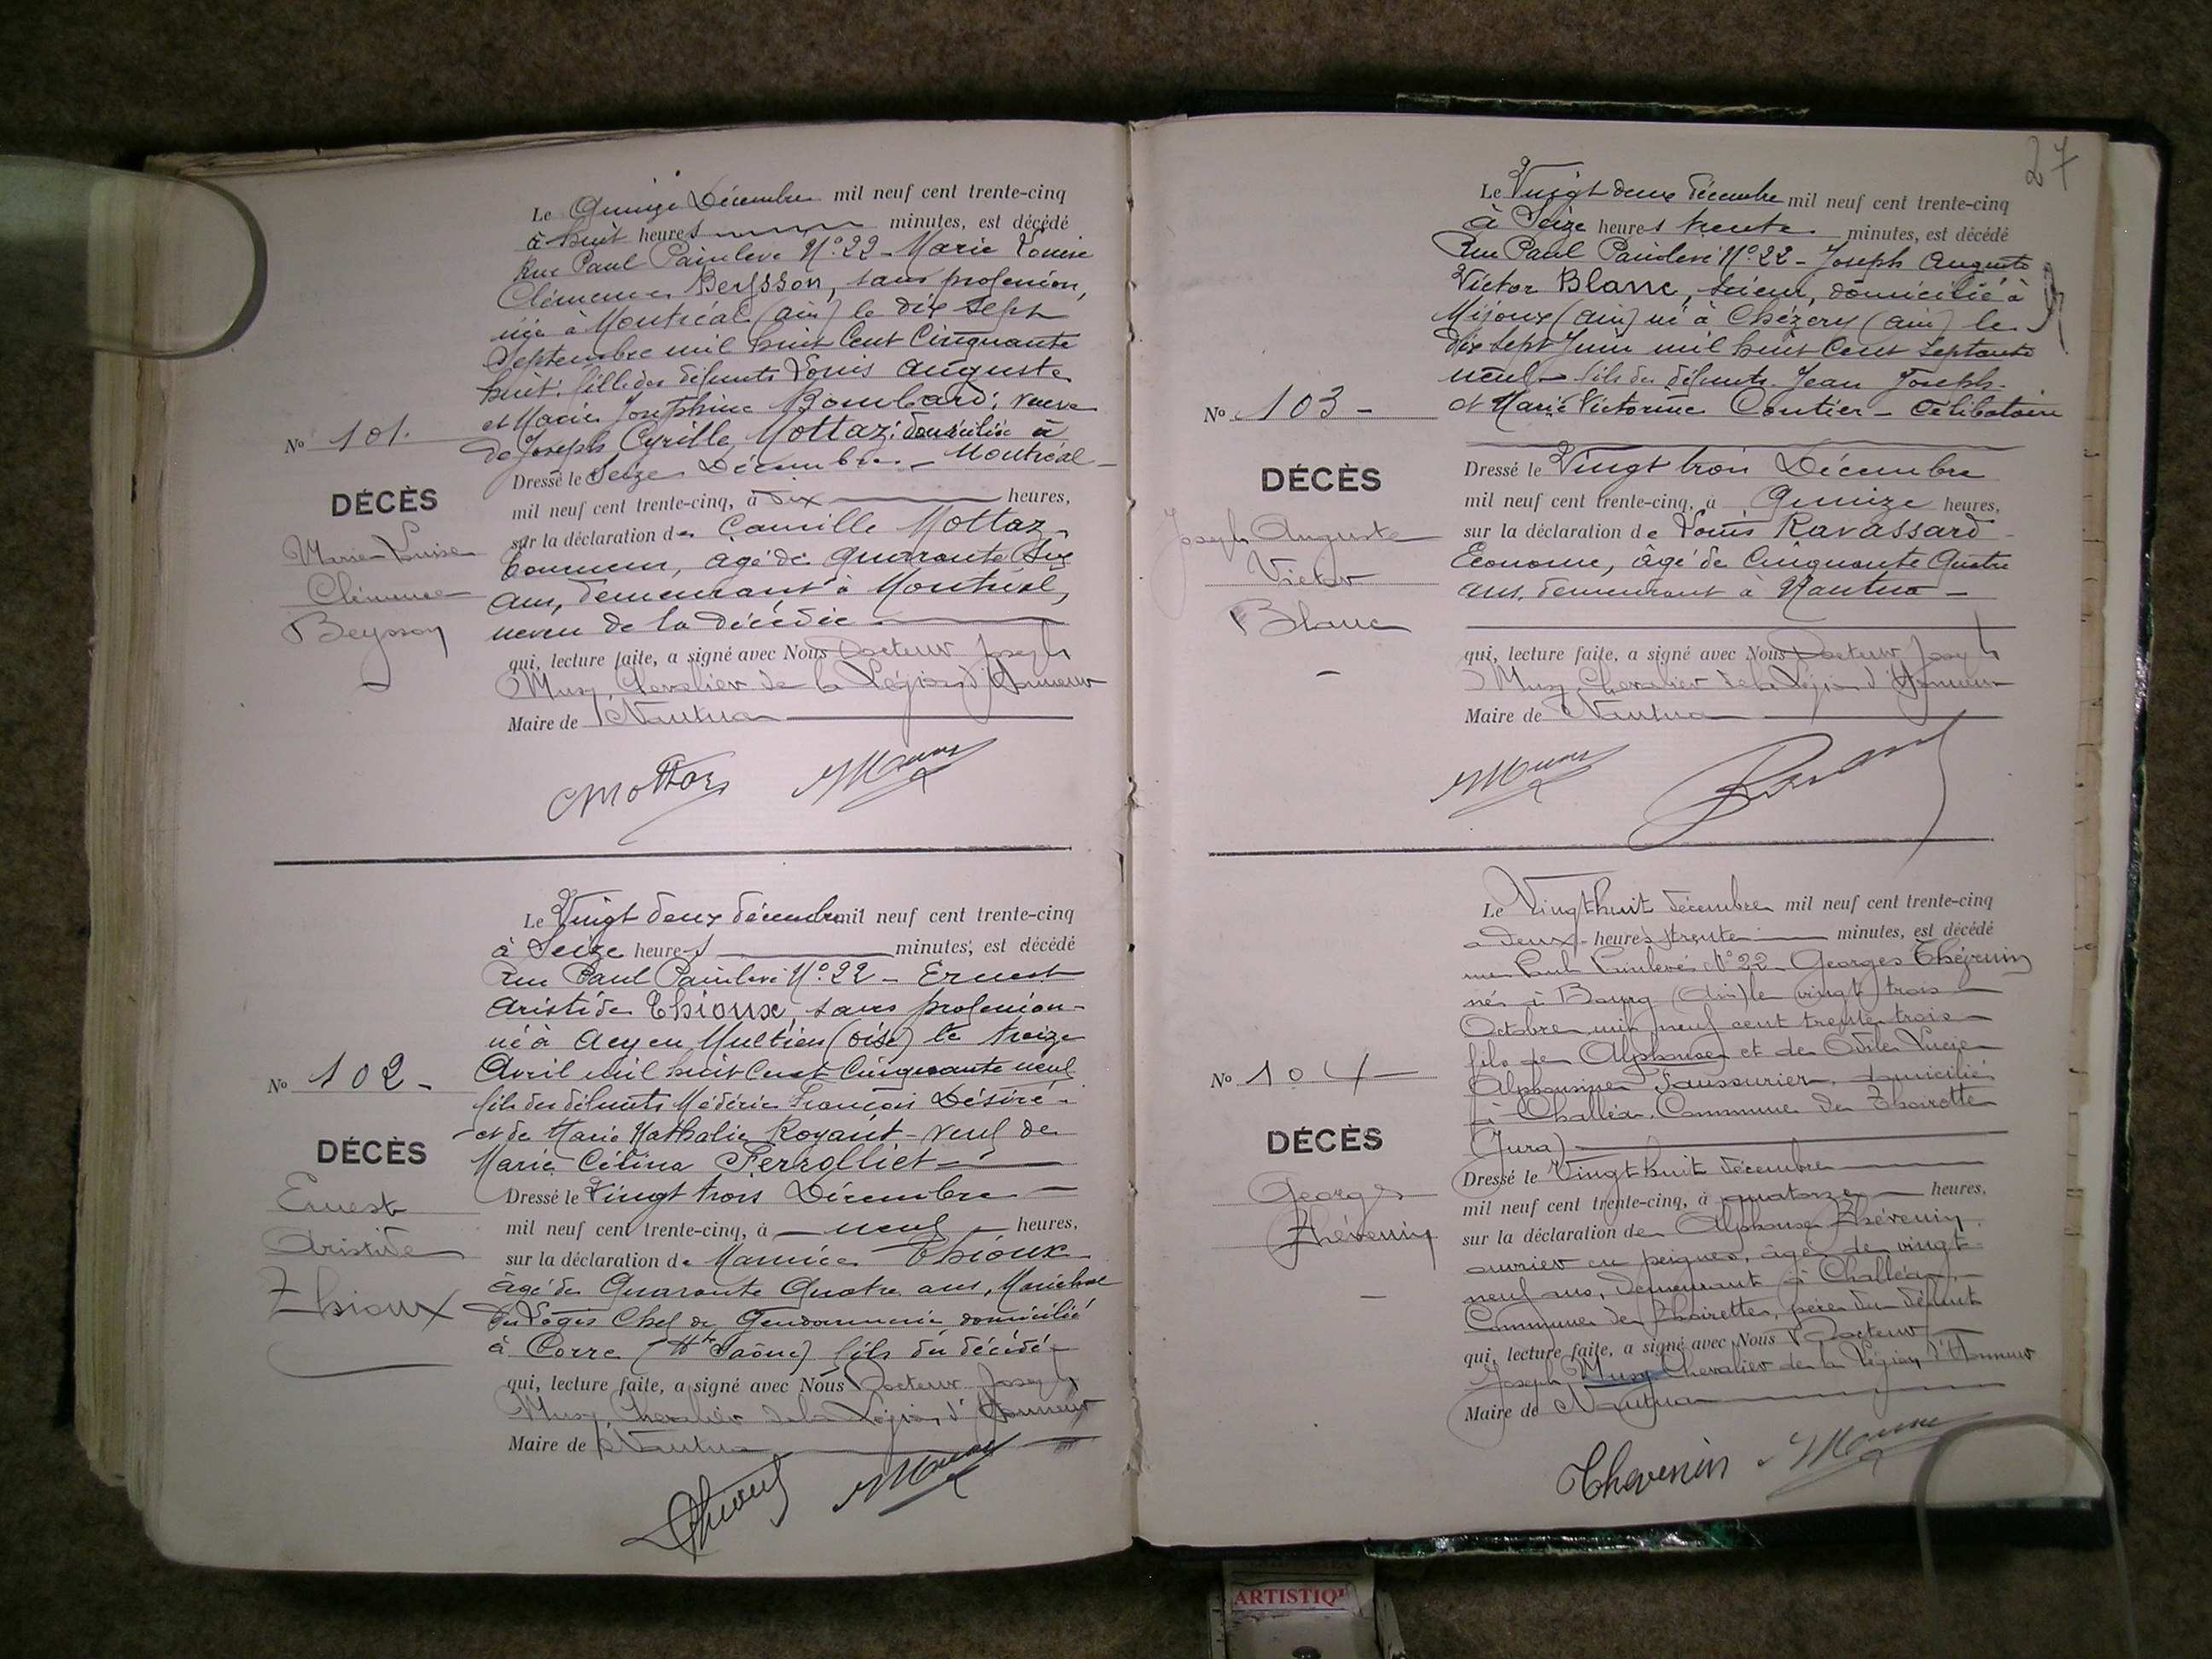 Le Quinze Décembre mil neuf cent trente-cinq
à huit heures minutes, est décédé
Rue Paul Painlevé N° 22 - Marie Louise
Clémence Beysson, sans profession,
née à Montréal (ain) le dix sept
Septembre mil huit Cent Cinquante
huit. fille des défunts Louis Auguste
et Marie Josephine Bombard; veuve
de Joseph Cyrille Mottaz; domiciliée à
Montréal -
N° 101.
DÉCÈS
Marie-Louise
Clémence
Beysson
Dressé le Seize Décembre -
mil neuf cent trente-cinq, à dix heures,
sur la déclaration de Camille Mottaz
âgé de Quarante Six
ans, demeurant à Montréal,
neveu de la décédée
qui, lecture faite, a signé avec Nous Docteur Joseph
Musy, Chevalier de la Légion d'Honneur
Maire de Nantua
CMottaz
Le Vingt deux décembre mil neuf cent trente-cinq
à Seize heures minutes, est décédé
Rue Paul Painlevé N° 22 - Ernest
Aristide Thioux, sans profession -
né à Acy en Multien (oise) le treize
Avril mil huit Cent Cinquante neuf
fils des défunts Médéric François Désiré -
et de Marie Nathalie Royant - veuf de
Marie Célina Perrolliet -
N° 102 -
DÉCÈS
Ernest
Aristide
Thioux
Dressé le Vingt trois Décembre -
mil neuf cent trente-cinq, à neuf heures,
sur la déclaration de Maurice Thioux
âgé de Quarante Quatre ans, Maréchal
des Logis Chef de Gendarmerie domicilié
à Corre (Hte Saône) fils du décédé -
qui, lecture faite, a signé avec Nous Docteur Joseph
Musy, Chevalier de la Légion d'Honneur
Maire de Nantua
Thioux
27
Le Vingt deux décembre mil neuf cent trente-cinq
à Seize heures trente minutes, est décédé
Rue Paul Painlevé N° 22 - Joseph Auguste
Victor Blanc, scieur, domicilié à
Mijoux (ain) né à Chézery (ain) le
dix sept Juin mil huit Cent Septante
neuf - fils des défunts Jean Joseph -
et Marie Victorine Coutier - Célibataire
N° 103 -
DÉCÈS
Joseph Auguste
Victor
Blanc
Dressé le Vingt trois Décembre
mil neuf cent trente-cinq, à Quinze heures,
sur la déclaration de Louis Ravassard -
Econome, âgé de Cinquante Quatre
ans, demeurant à Nantua -
qui, lecture faite, a signé avec Nous Docteur Joseph
Musy, Chevalier de la Légion d'Honneur
Maire de Nantua
Le Vingt huit décembre mil neuf cent trente-cinq
à deux heures trente minutes, est décédé
rue Paul Painlevé N° 22 - Georges Thévenin
né à Bourg (Ain) le vingt trois
Octobre mil neuf cent trente trois -
fils de Alphonse et de Odile Lucie
Alphonsine Saussurier, domicilié
à Challéa, Commune de Thoirette
(Jura)
N° 104 -
DÉCÈS
Georges
Thévenin
Dressé le Vingt huit décembre
mil neuf cent trente-cinq, à quatorze heures,
sur la déclaration de Alphonse Thévenin
ouvrier en peignes, âgé de vingt
neuf ans, demeurant à Challéa,
Commune de Thoirette, père du défunt
qui, lecture faite, a signé avec Nous Docteur
Joseph Musy Chevalier de la Légion d'Honneur
Maire de Nantua
Thevenin
ARTISTIQ